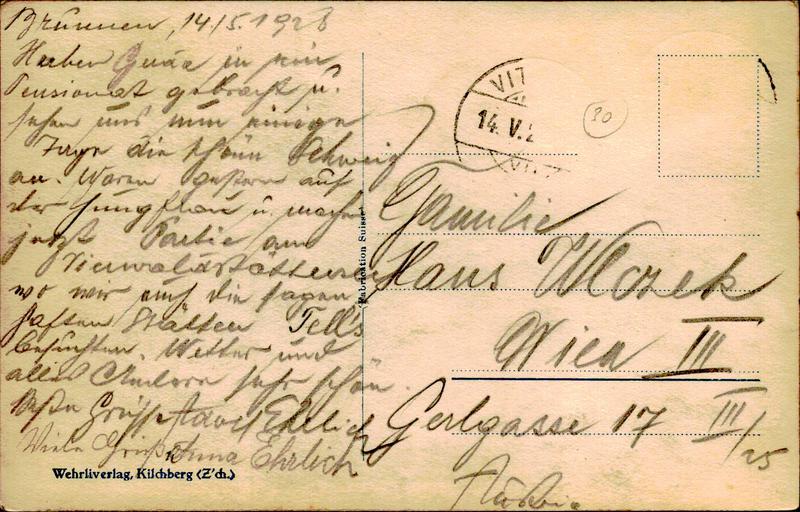 Brunnen, 14/5. 1928
Haben in ein
Pensionat gebracht u.
sehen uns nun einige
Tage die schöne Schweiz
an. Waren gestern auf
der Jungfrau u. machen
jetzt Partie am
Vierwaldstättersee
wo wir auch die sagen
haften Stätten Tells
besuchten. Wetter und
alles Andere sehr schön.
Beste Grüsse Ehrlich
Viele Grüße Anna Ehrlich
Wehrliverlag, Kilchberg (Z'ch.)
Fabrication Suisse
VIT
14. V. 2
30
Familie
Hans
Wien III
Gerlgasse 17 III/25
Austria